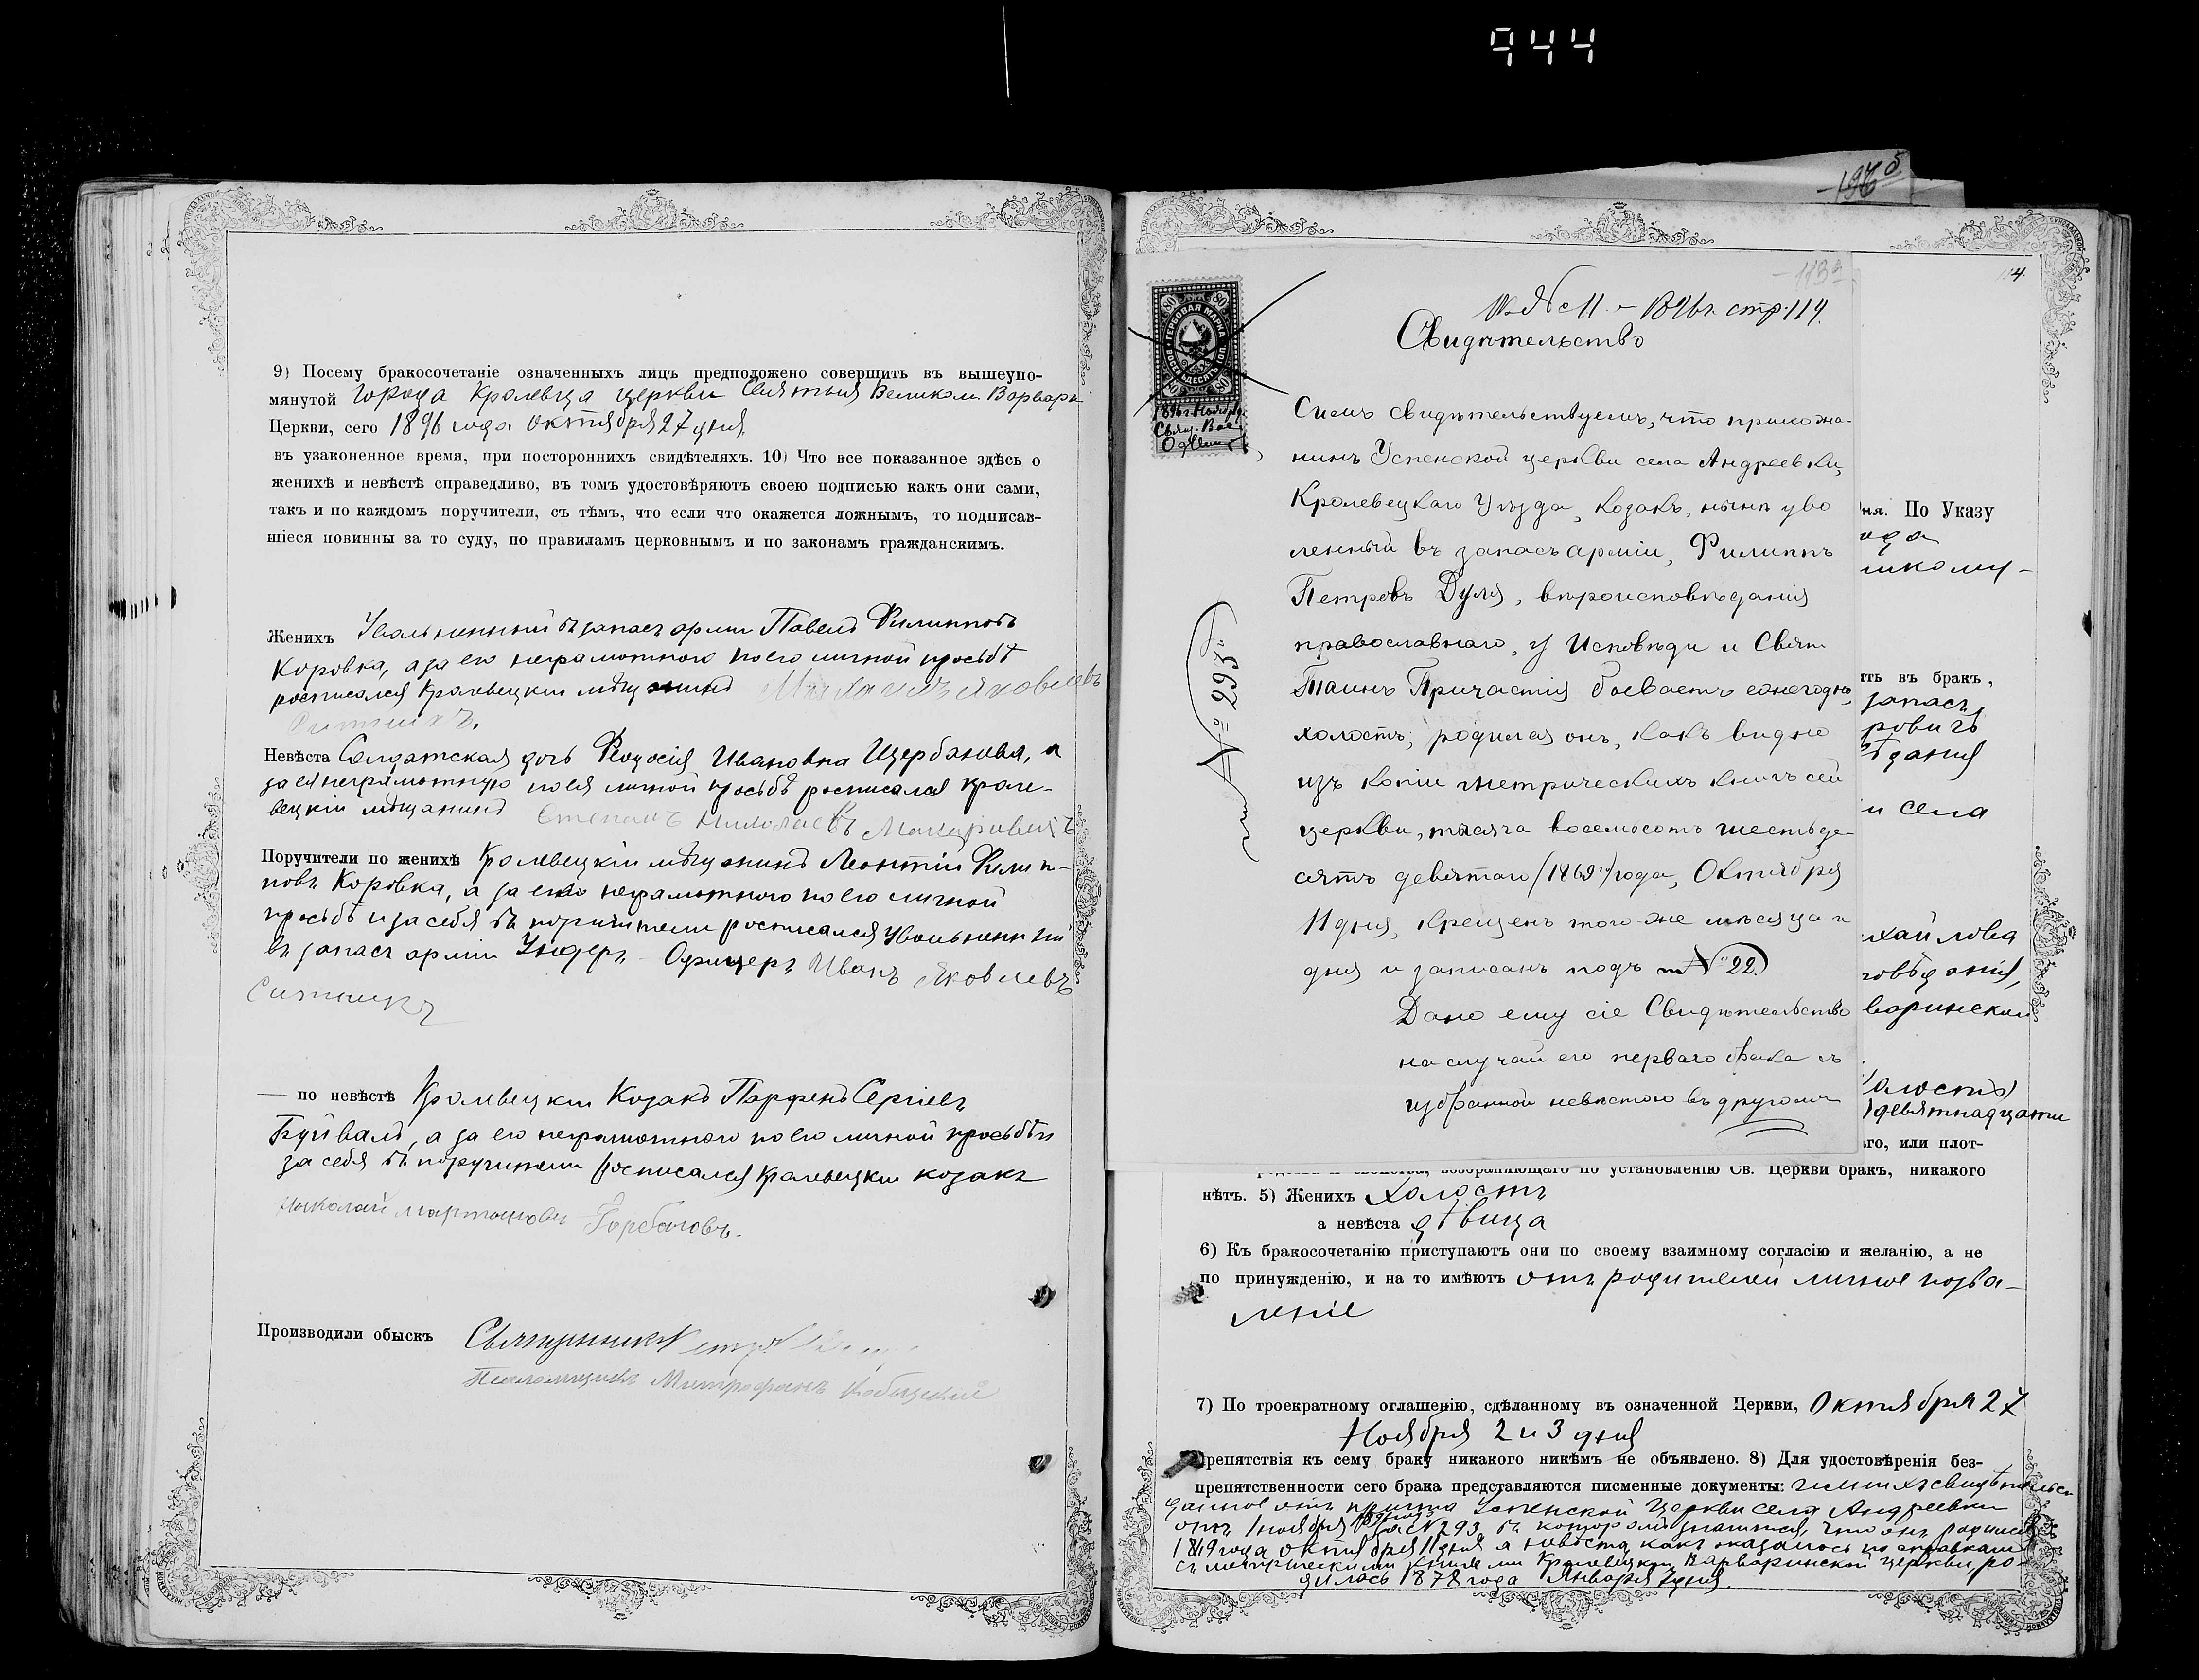 944
9) Посему бракосочетаніе означенныхъ лицъ предположено совершить въ вышеупо-
мянутой города Кролевца церкви Святыя Великом. Варвары
Церкви, сего 1896 года октября 27 дня
въ узаконенное время, при постороннихъ свидѣтеляхъ. 10) Что все показанное здѣсь о
женихѣ и невѣстѣ справедливо, въ томъ удостовѣряютъ своею подписью какъ они сами,
такъ и по каждомъ поручители, съ тѣмъ, что если что окажется ложнымъ, то подписав-
шіеся повинны за то суду, по правиламъ церковнымъ и по законамъ гражданскимъ.
Женихъ Увольненный въ запасъ арміи Павелъ Филипповъ
Коровка, а за его неграмотного по его личной просьбѣ
росписался Кролевецкій мѣщанинъ Яковлевъ
Невѣста Солдатская дочь Феодосія Ивановна Щербакова, а
за ея неграмотную по ея личной просьбѣ росписался Кроле-
вецкій мѣщанинъ Степанъ Николаевъ
Поручители по женихѣ Кролевецкій мѣщанинъ Леонтій Филип-
повъ Коровка, а за его неграмотного по его личной
просьбѣ и за себя въ поручители росписался увольненный
въ запасъ арміи Унтеръ-Офицеръ Иванъ Яковлевъ
Ситникъ
— по невѣстѣ Кролевецкій Козакъ Парфенъ Сергіевъ
Буйвалъ, а за его неграмотного по его личной просьбѣ и
за себя въ поручители росписался Кролевецкій козакъ
Николай Мартыновъ Горбачовъ.
Производили обыскъ Священникъ
Псаломщикъ Митрофанъ
113
№ 11 – 1896 г. стр. 114.
Свидѣтельство
Симъ свидѣтельствуемъ, что прихожа-
нинъ Успенской церкви села Андреевки,
Кролевецкаго Уѣзда, козакъ, нынѣ уво
ленный въ запасъ арміи, Филиппъ
Петровъ Дуля, вѣроисповѣданія
православнаго, у Исповѣди и Свят.
Таинъ Причастія бываетъ ежегодно,
холостъ; родился онъ, какъ видно
изъ копіи метрическихъ книгъ сей
церкви, тысяча восемьсотъ шестьде-
сятъ девятаго (1869) года, Октября
11 дня, крещенъ того-же мѣсяца и
дня и записанъ подъ № 22.
Дано ему сіе Свидѣтельство
на случай его перваго брака съ
избранной невѣстою въ другомъ
№ 293
ГЕРБОВАЯ МАРКА
80
1896 г. Ноября
4
дня. По Указу
ода
ить въ бракъ,
запасъ
ровичъ
ѣданія
и села
хайлова
говѣданія,
варинской
холостъ
девятнадцати
го, или плот-
возбраняющаго по установленію Св. Церкви бракъ, никакого
нѣтъ. 5) Женихъ холостъ
а невѣста дѣвица
6) Къ бракосочетанію приступаютъ они по своему взаимному согласію и желанію, а не
по принужденію, и на то имѣютъ отъ родителей личное позво-
леніе
7) По троекратному оглашенію, сдѣланному въ означенной Церкви, Октября 27
Ноября 2 и 3 дня
препятствія къ сему браку никакого никѣмъ не объявлено. 8) Для удостовѣренія без-
препятственности сего брака представляются писменные документы:
данное отъ причта Успенской Церкви села Андреевки
отъ 1 ноября за № 293 въ которомъ значится, что онъ родился
1869 года октября 11 дня а невѣста какъ оказалось по справкамъ
съ метрическими книгами Кролевецкой Варваринской церкви, ро-
дилась 1878 года Января дня.